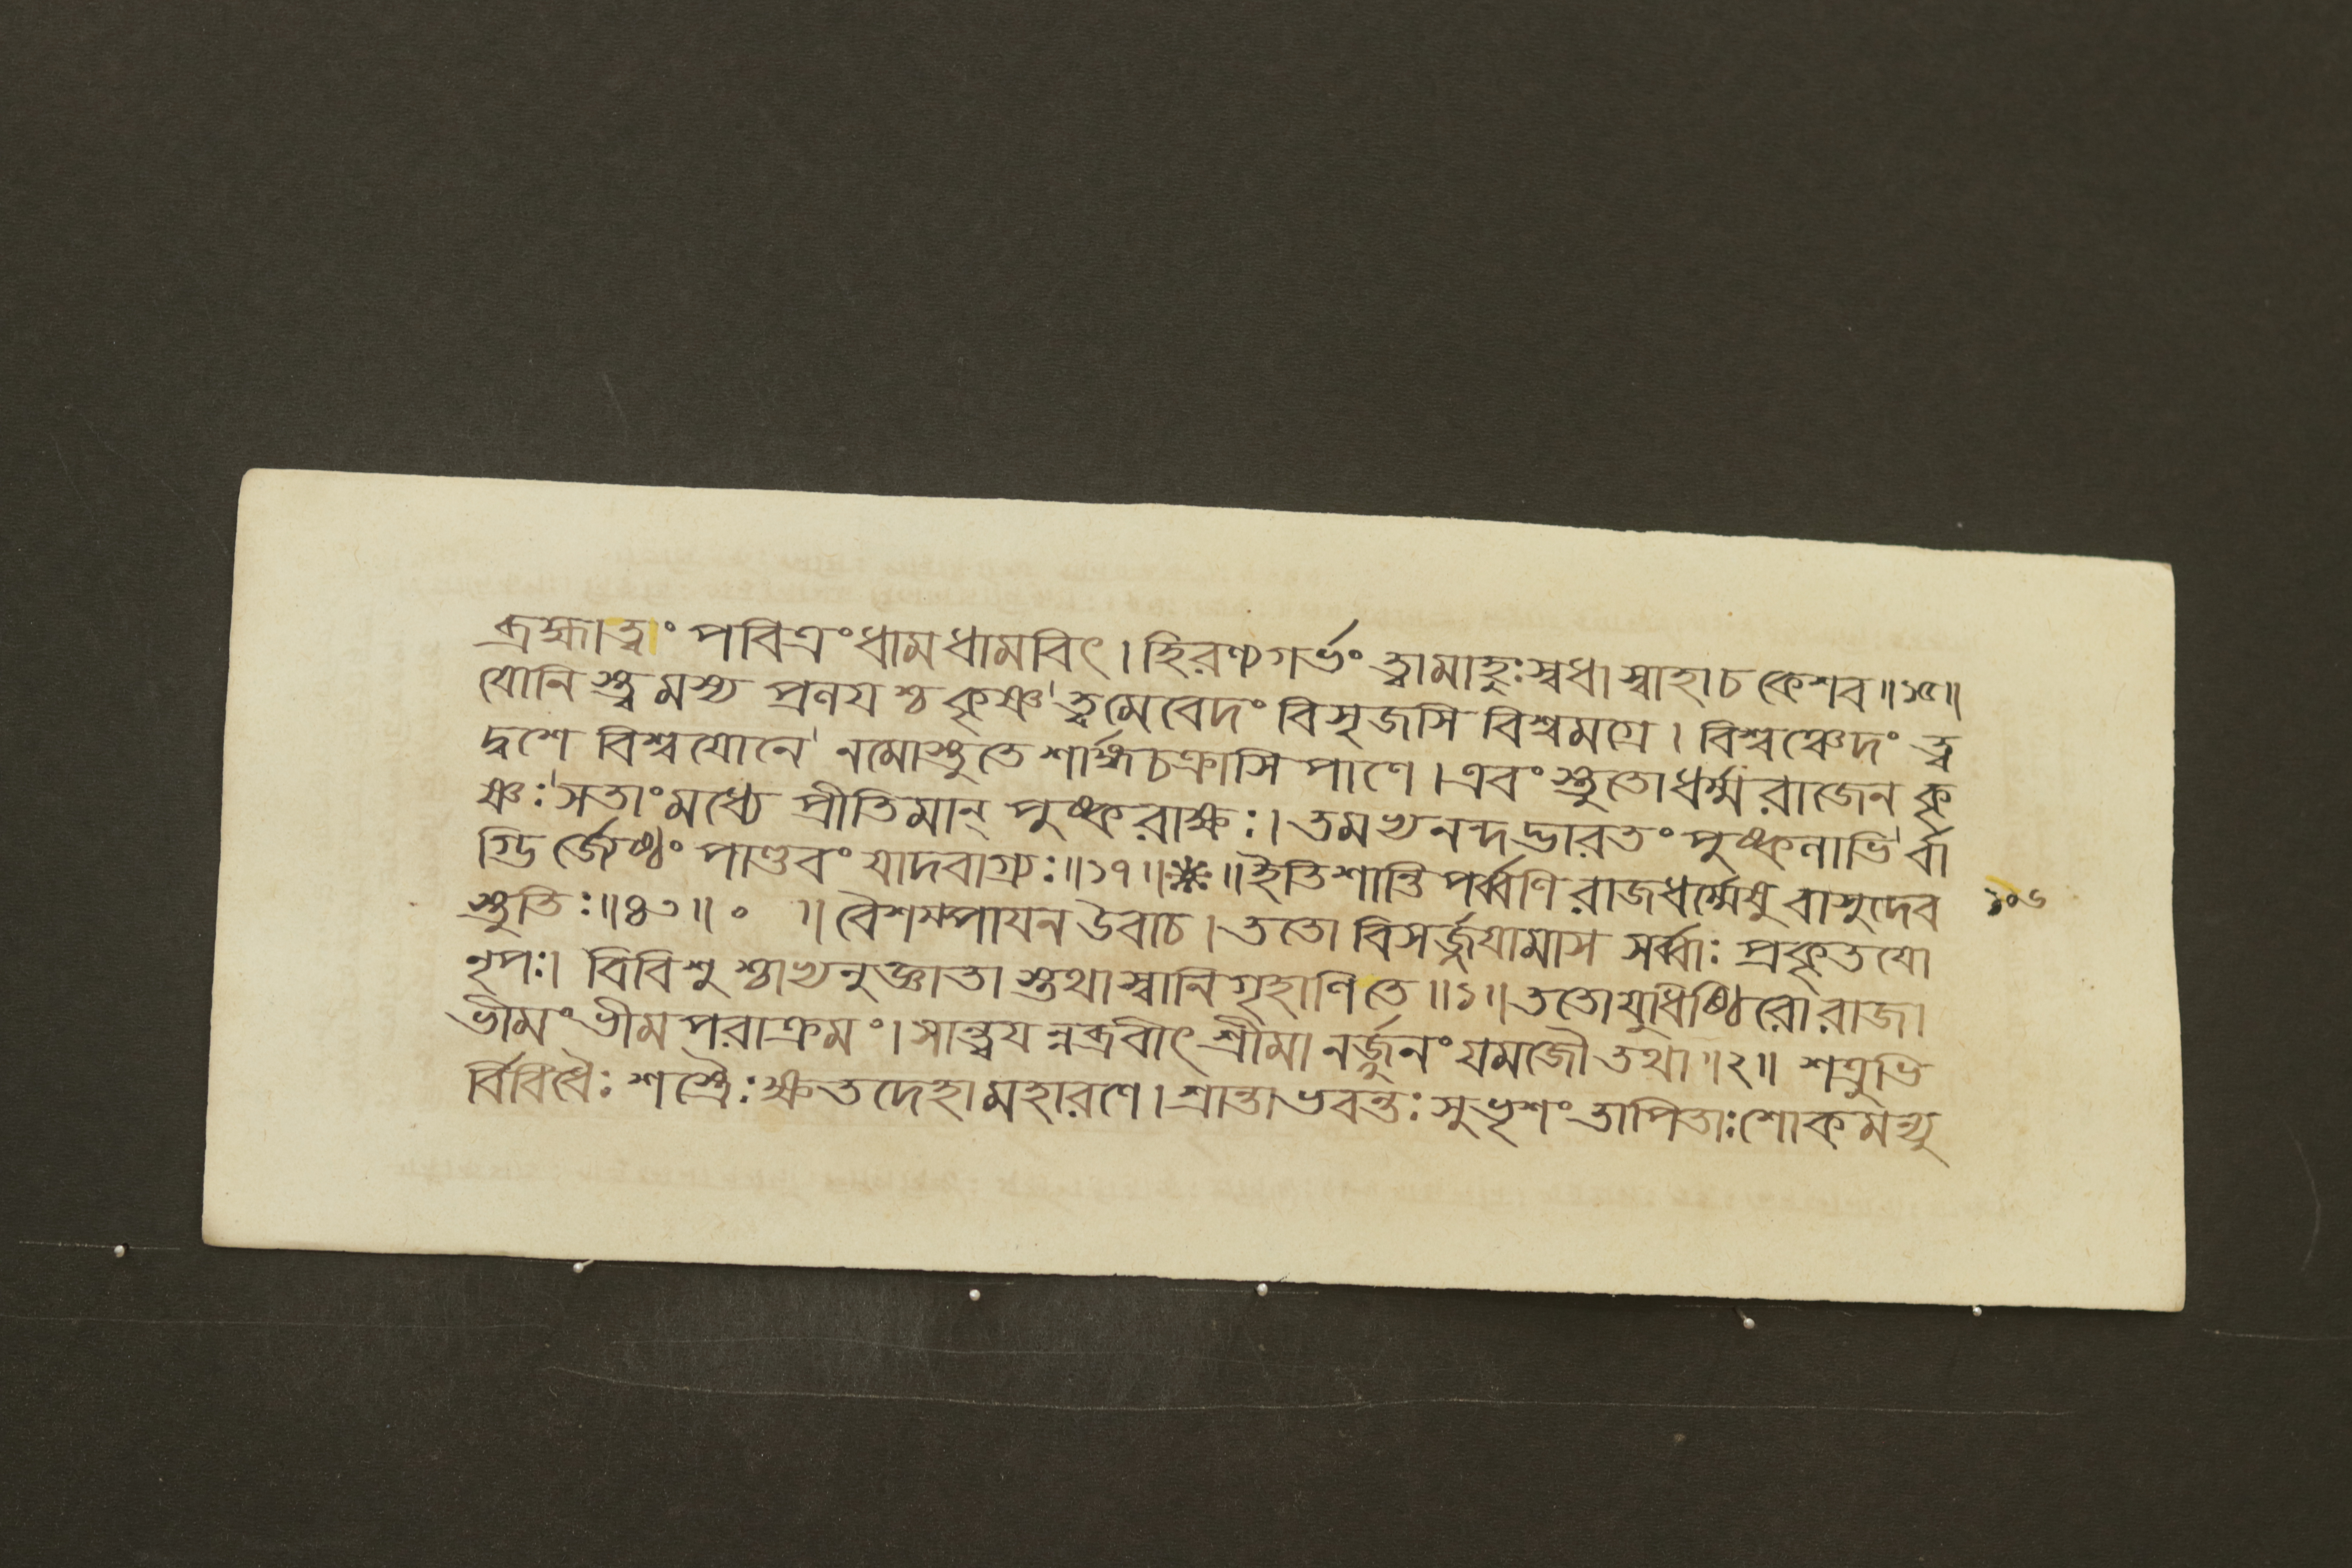 ব্রহ্মাত্বাং পবিত্রং ধাম ধামবিৎ । হিরণ্যগর্ভং ত্বামাহুঃ স্বধা স্বাহা চ কেশব ॥১৫॥
যোনিস্ত্বমস্য প্রলযশ্চ কৃষ্ণ ত্বমেবেদং বিসৃজসি বিশ্বমগ্রে । বিশ্বঞ্চেদং ত্ব
দ্বশে বিশ্বযোনে নমোস্তুতে শার্ঙ্গচক্রাসিপাণে । এবং স্তুতো ধর্ম্মরাজেন কৃ
ষ্ণঃ সতাং মধ্যে প্রীতিমান্ পুষ্করাক্ষঃ । তমভ্যনন্দদ্ভারতং পুষ্কলাভির্বা
গ্ভির্জেষ্ঠং পাণ্ডবং যাদবাগ্র্যঃ ॥১৭॥❈॥ ইতি শান্তিপর্ব্বণি রাজধর্ম্মেষু বাসুদেব
স্তুতিঃ ॥৪৩॥ ॰ ॥ বৈশম্পাযন উবাচ । ততো বিসর্জ্জযামাস সর্ব্বাঃ প্রকৃতযো
নৃপঃ । বিবিশুশ্চাভ্যনুজ্ঞাতা স্তথা স্বানি গৃহাণি তে ॥১॥ ততো যুধিষ্ঠিরো রাজা
ভীমং ভীমপরাক্রমং । সান্ত্বযন্নব্রবীৎ শ্রীমানর্জ্জুনং যমজৌ তথা ॥২॥ শত্রুভি
র্বিবিধৈঃ শস্ত্রৈঃ ক্ষতদেহা মহারণে । শ্রান্তা ভবন্তঃ সুভৃশং তাপিতাঃ শোকমন্যু
১০৬